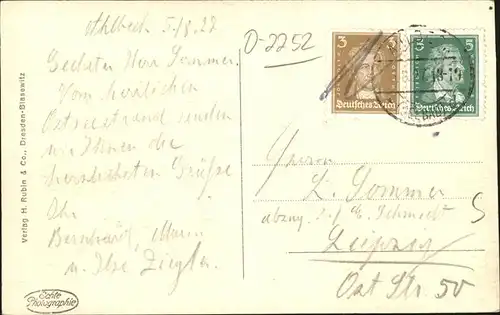 Ahlbeck 5/8 28
D-2252
Geehrter Herr Sommer.
Vom herrlichen
Ostseestrand senden
wir Ihnen die
herzlichsten Grüße
Ihr
Bernhard, Marie
u. Ilse Ziegler.
Verlag H. Rubin & Co., Dresden-Blasewitz
Echte Photographie
3 3
Deutsches Reich
5 5
Deutsches Reich
Herrn
L. Sommer
E. Schmidt
Leipzig
Ost Str. 50